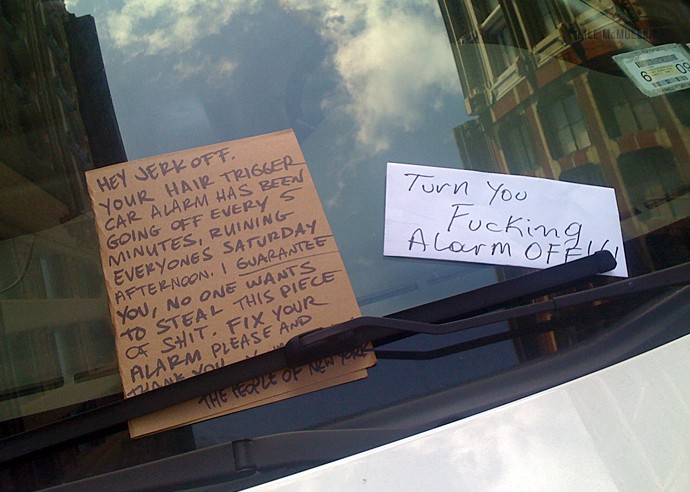 HEY JERK OFF.
YOUR HAIR TRIGGER
CAR ALARM HAS BEEN
GOING OFF EVERY 5
MINUTES, RUINING
EVERYONES SATURDAY
AFTERNOON. I GUARANTEE
YOU, NO ONE WANTS
TO STEAL THIS PIECE
OF SHIT. FIX YOUR
ALARM PLEASE AND
THANK YOU
THE PEOPLE OF NEW YORK
Turn You
Fucking
Alarm OFF!!!
6 09